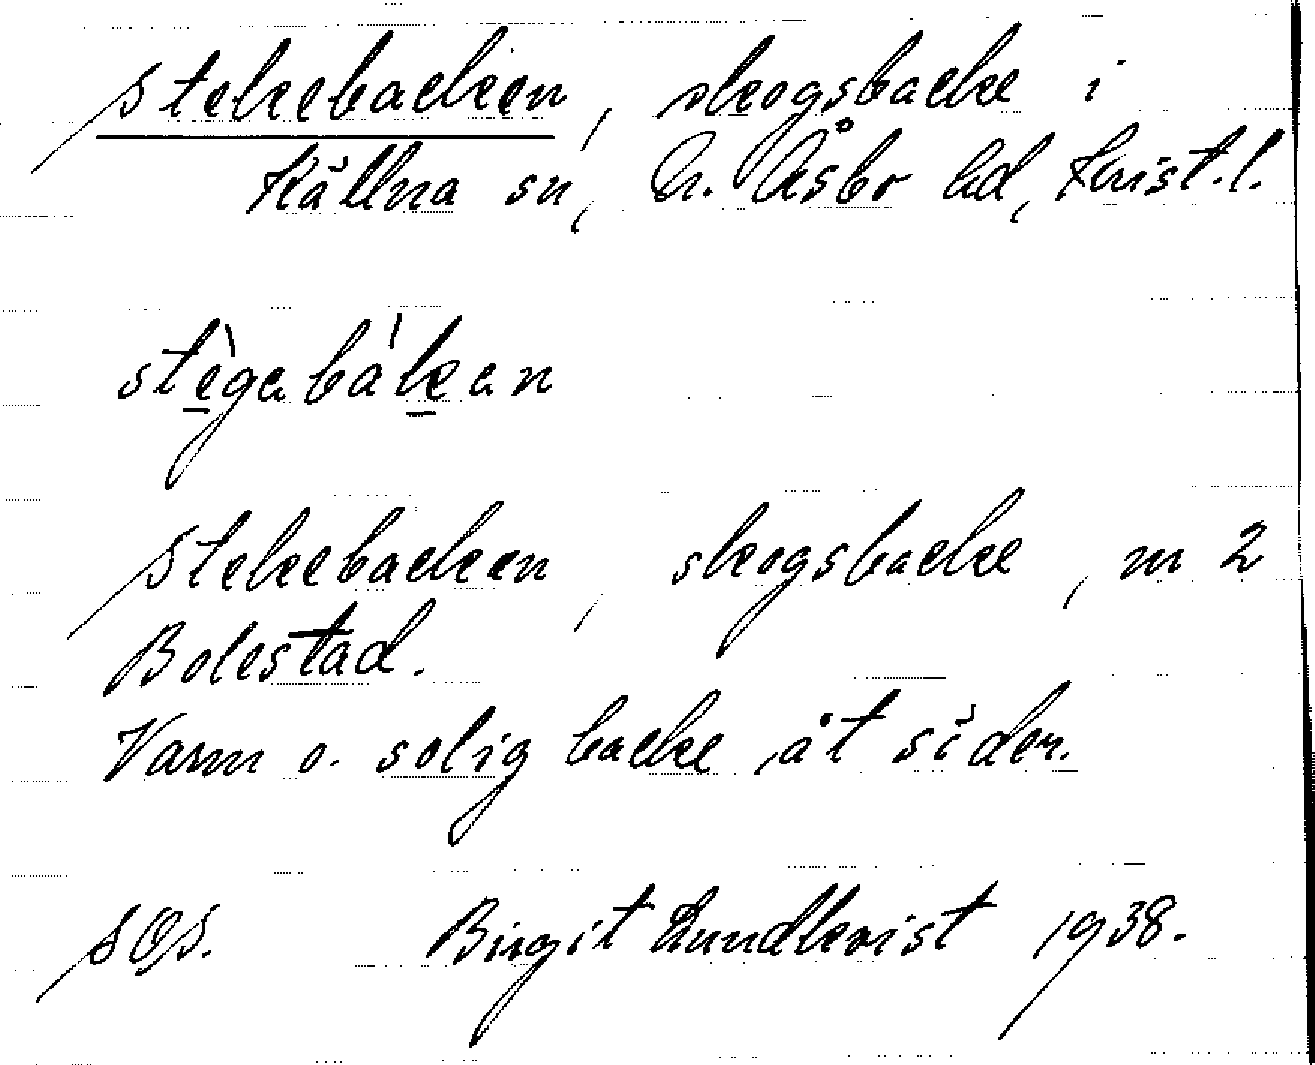 Stekebacken, skogsbacke i
Källna sn, N. Åsbo hd, Krist.l.
stègabàkan
Stekebacken, skogsbacke, nr 2
Bolestad.
Varm o. solig backe åt söder.
SOS. Birgit Lundkvist 1938.